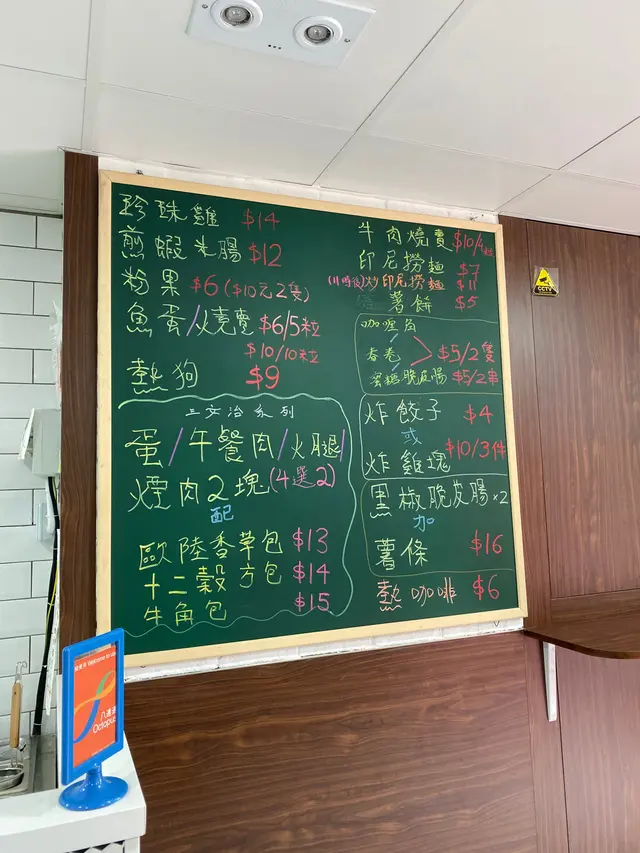 珍珠雞 $14
煎蝦米腸 $12
粉果 $6 ($10元2隻)
魚蛋/燒賣 $6/5粒
$10/10粒
熱狗 $9
三文治系列
蛋/午餐肉/火腿/
煙肉2塊(4選2)
配
歐陸香草包 $13
十二穀方包 $14
牛角包 $15
牛肉燒賣 $10/4粒
印尼撈麵 $7
炒印尼撈麵 $11
薯餅 $5
咖哩角
春卷 > $5/2隻
脆皮腸 $5/2串
炸餃子 $4
或
炸雞塊 $10/3件
黑椒脆皮腸x2
加
薯條 $16
熱咖啡 $6
CCTV
Welcome to use
八達通
Octopus